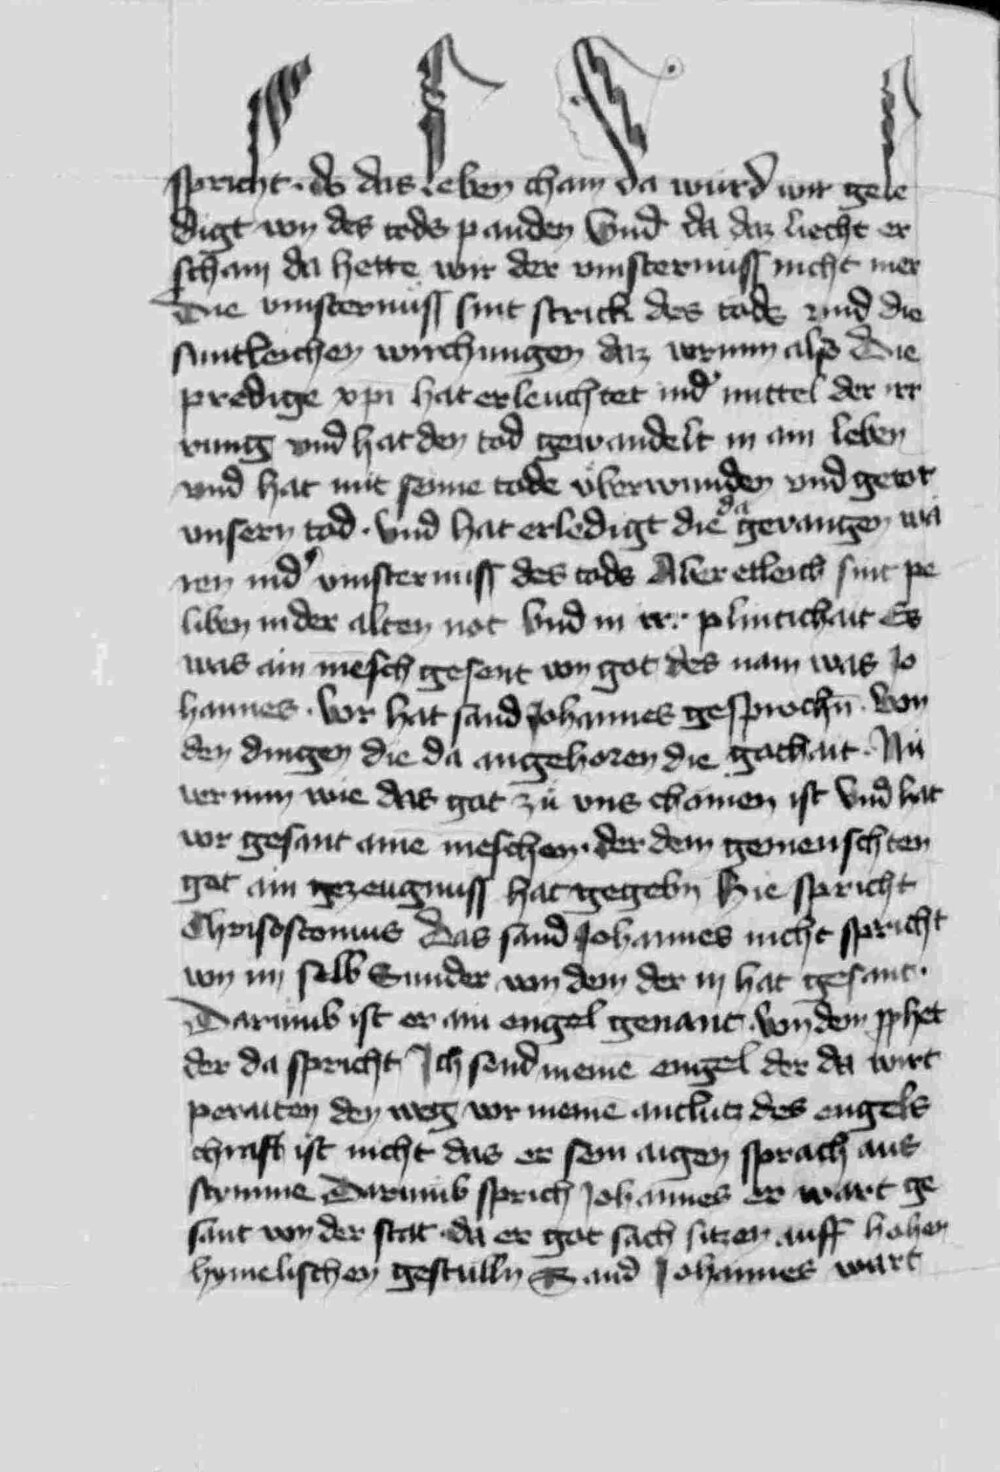 spricht · do das leben cham da wurd wir gele
digt von des tods panden Vnd da daz liecht er
scham da hette wir der vinsternuss nicht mer
Die vinsternuss sint strick des tods vnd die
suntleichen wirchungen daz vernim also Die
predige xpi hat erleuchtet ind' mittel der irr
rung vnd hat den tod gewandelt in ain leben
vnd hat mit seine tode vberwunden vnd getot
vnsern tod · vnd hat erledigt die da gevangen wa
ren ind' vinsternuss des tods Aber etleich sint pe
liben in der alten not Vnd in irr plintichait Es
was ain mesch gesent von got des nam was Jo
hannes · Vor hat sand Johannes gesprochn̄ · Von
den dingen die da angehoren die gothait · Nu
vernim wie das got zu vns chomen ist Vnd hat
vor gesant aine meschen · der dem gemenschten
got ain gezeugnuss hat gegebn̄ Hie spricht
Chrisostomus Das sand Johannes nicht spricht
von im selb Sunder von dem der in hat gesant ·
Darumb ist er ain engel genant · Von dem pphet
der da spricht Ich send meine engel der da wirt
peraiten den weg vor meine antlutz des engels
chraft ist nicht das er sein aigen sprach aus
stymme Darumb sprich Johannes er wart ge
sant von der stat · da er got sach sitzen auff hohen
hymelischen gestulln Sand Johannes wart